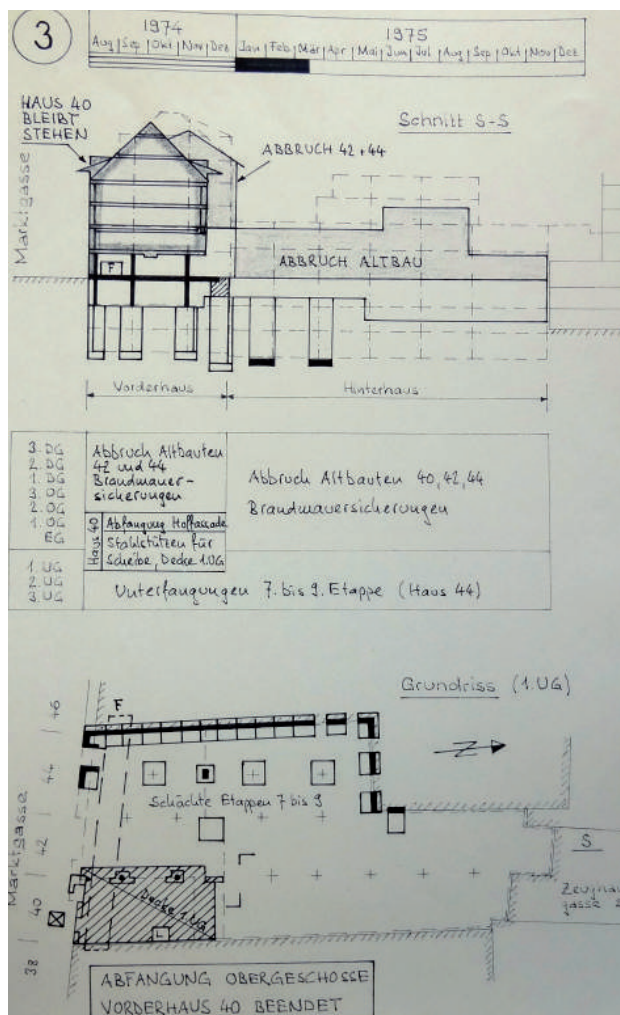 3
1974
1975
Aug | Sep | Okt | Nov | Dez | Jan | Feb | Mär | Apr | Mai | Jun | Jul | Aug | Sep | Okt | Nov | Dez
HAUS 40
BLEIBT
STEHEN
Schnitt S-S
Marktgasse
ABBRUCH 42+44
F
ABBRUCH ALTBAU
Vorderhaus
Hinterhaus
3. DG
2. DG
1. DG
3. OG
2. OG
1. OG
EG
Abbruch Altbauten
42 und 44
Brandmauer-
sicherungen
Haus 40
Abfangung Hoffassade
Stahlstützen für
Scheibe, Decke 1.UG
Abbruch Altbauten 40, 42, 44
Brandmauersicherungen
1. UG
2. UG
3. UG
Unterfangungen 7. bis 9. Etappe (Haus 44)
Grundriss (1.UG)
F
46
44
42
40
38
Marktgasse
Schächte Etappen 7 bis 9
Z
Decke 1.UG
L
S
Zeughau
gasse
ABFANGUNG OBERGESCHOSSE
VORDERHAUS 40 BEENDET